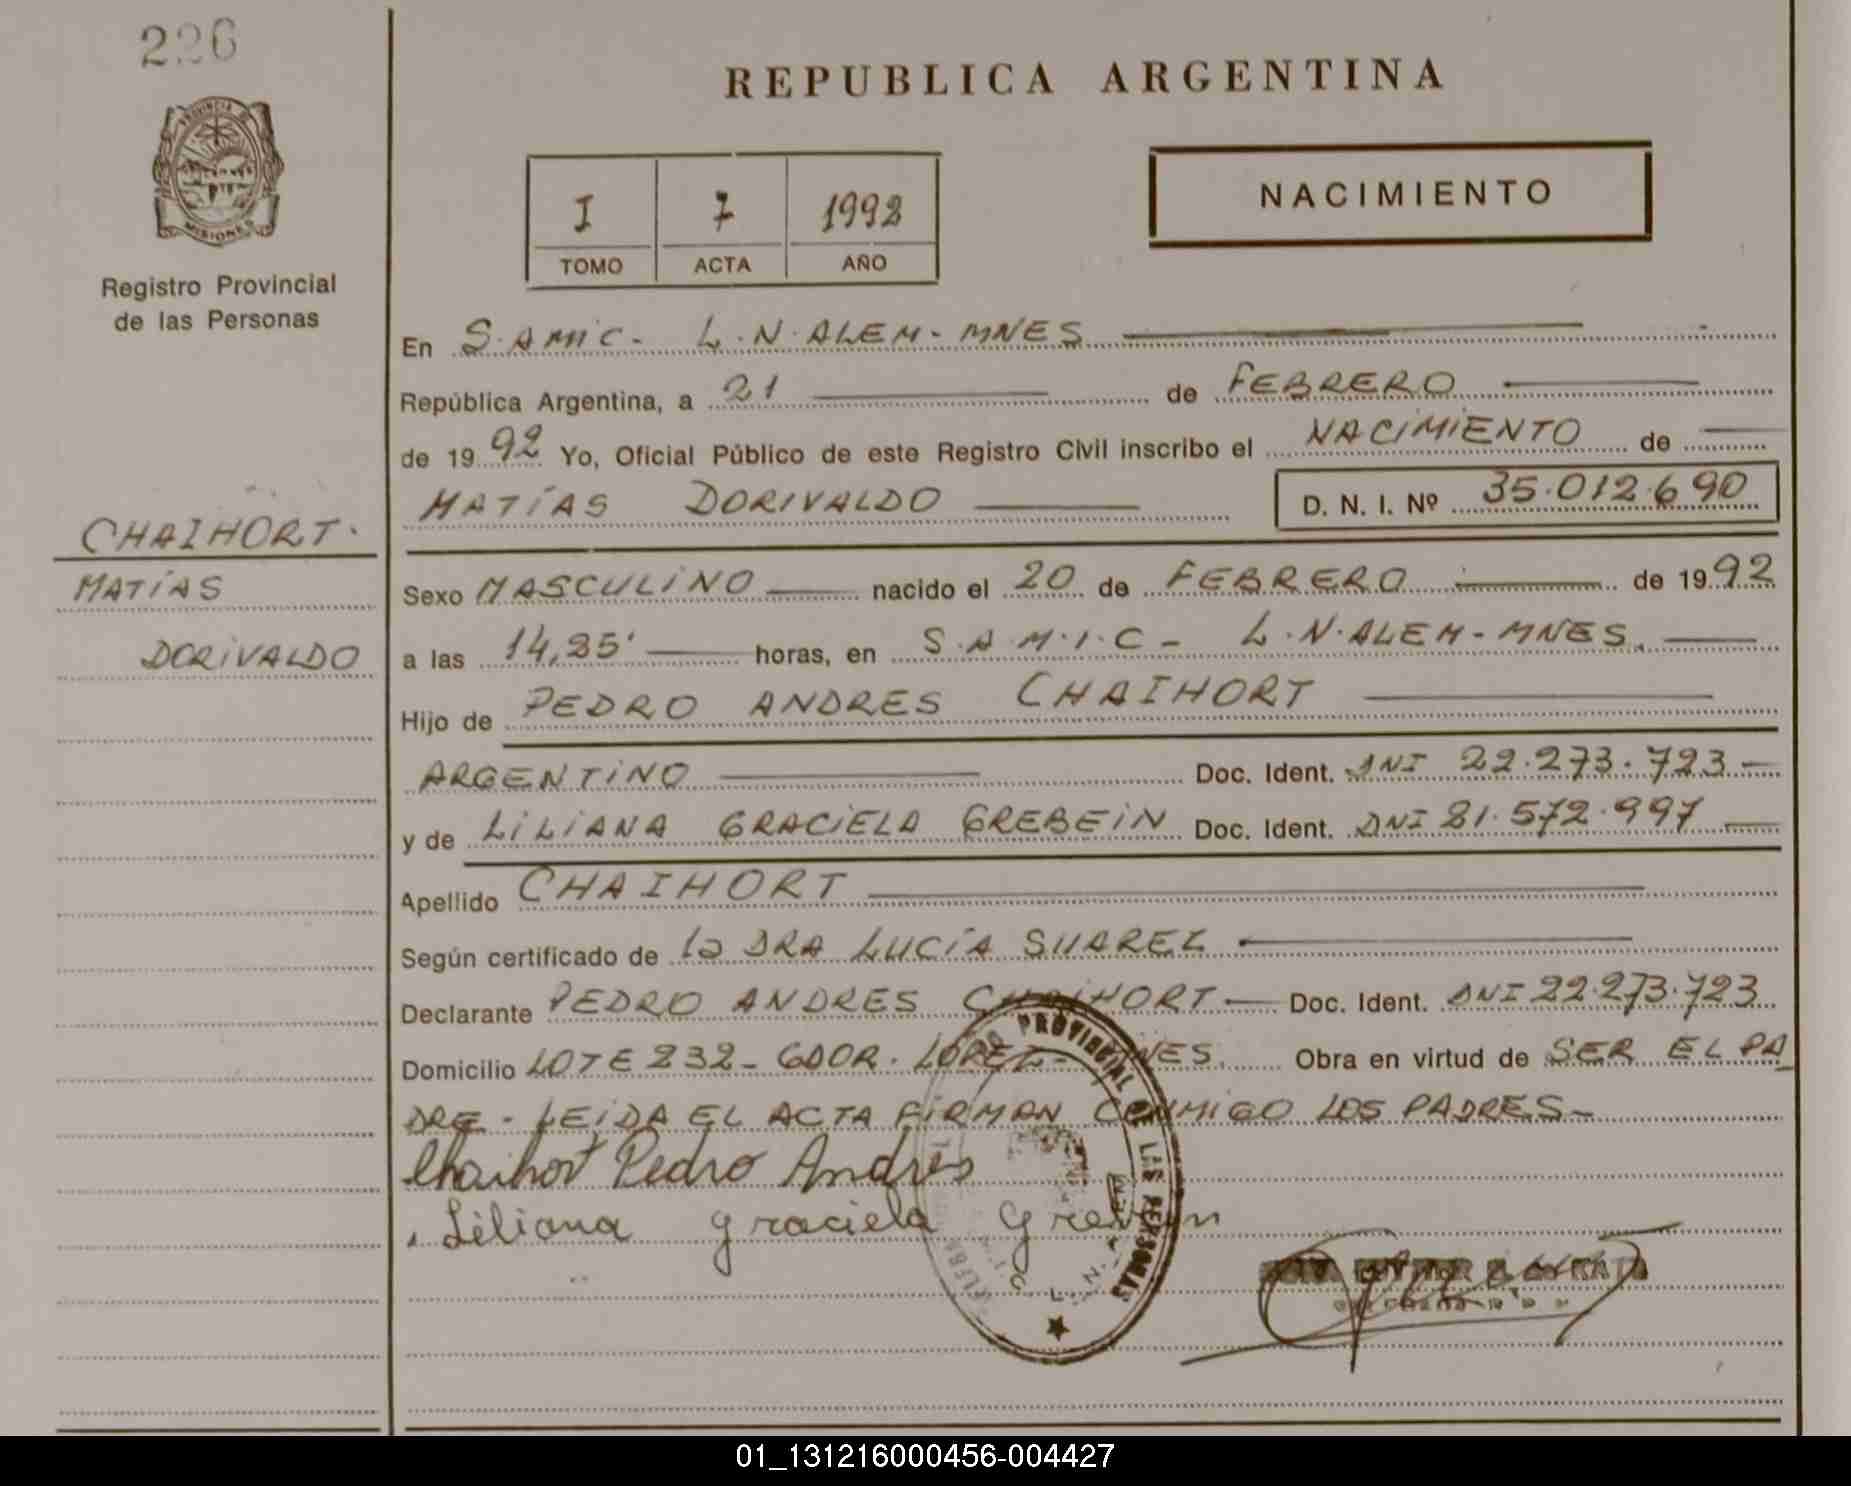 226
PROVINCIA
MISIONES
Registro Provincial
de las Personas
CHAIHORT.
MATÍAS
DORIVALDO
REPUBLICA ARGENTINA
I 7 1992
TOMO ACTA AÑO
NACIMIENTO
En S.AMIC. L.N.ALEM-MNES
República Argentina, a 21 de FEBRERO
de 1992 Yo, Oficial Público de este Registro Civil inscribo el NACIMIENTO de
MATÍAS DORIVALDO D. N. I. Nº 35.012.690
Sexo MASCULINO nacido el 20 de FEBRERO de 1992
a las 14,25' horas, en S.A.M.I.C- L.N.ALEM-MNES.
Hijo de PEDRO ANDRES CHAIHORT
ARGENTINO Doc. Ident. DNI 22.273.723
y de LILIANA GRACIELA GREBEIN Doc. Ident. DNI 21.572.997
Apellido CHAIHORT
Según certificado de la DRA LUCÍA SUAREZ
Declarante PEDRO ANDRES CHAIHORT Doc. Ident. DNI 22.273.723
Domicilio LOTE 232- GDOR. LOPEZ- MNES. Obra en virtud de SER EL PA
DRE - LEIDA EL ACTA FIRMAN CONMIGO LOS PADRES-
Chaihort Pedro Andrés
Liliana Graciela Grebein
PROVINCIAL DE LAS PERSONAS
01_131216000456-004427